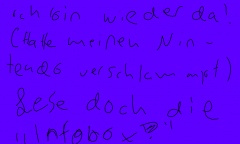 ich bin wieder da!
(Hatte meinen Nin-
tendo verschlammpt)
Lese doch die
Infobox?!